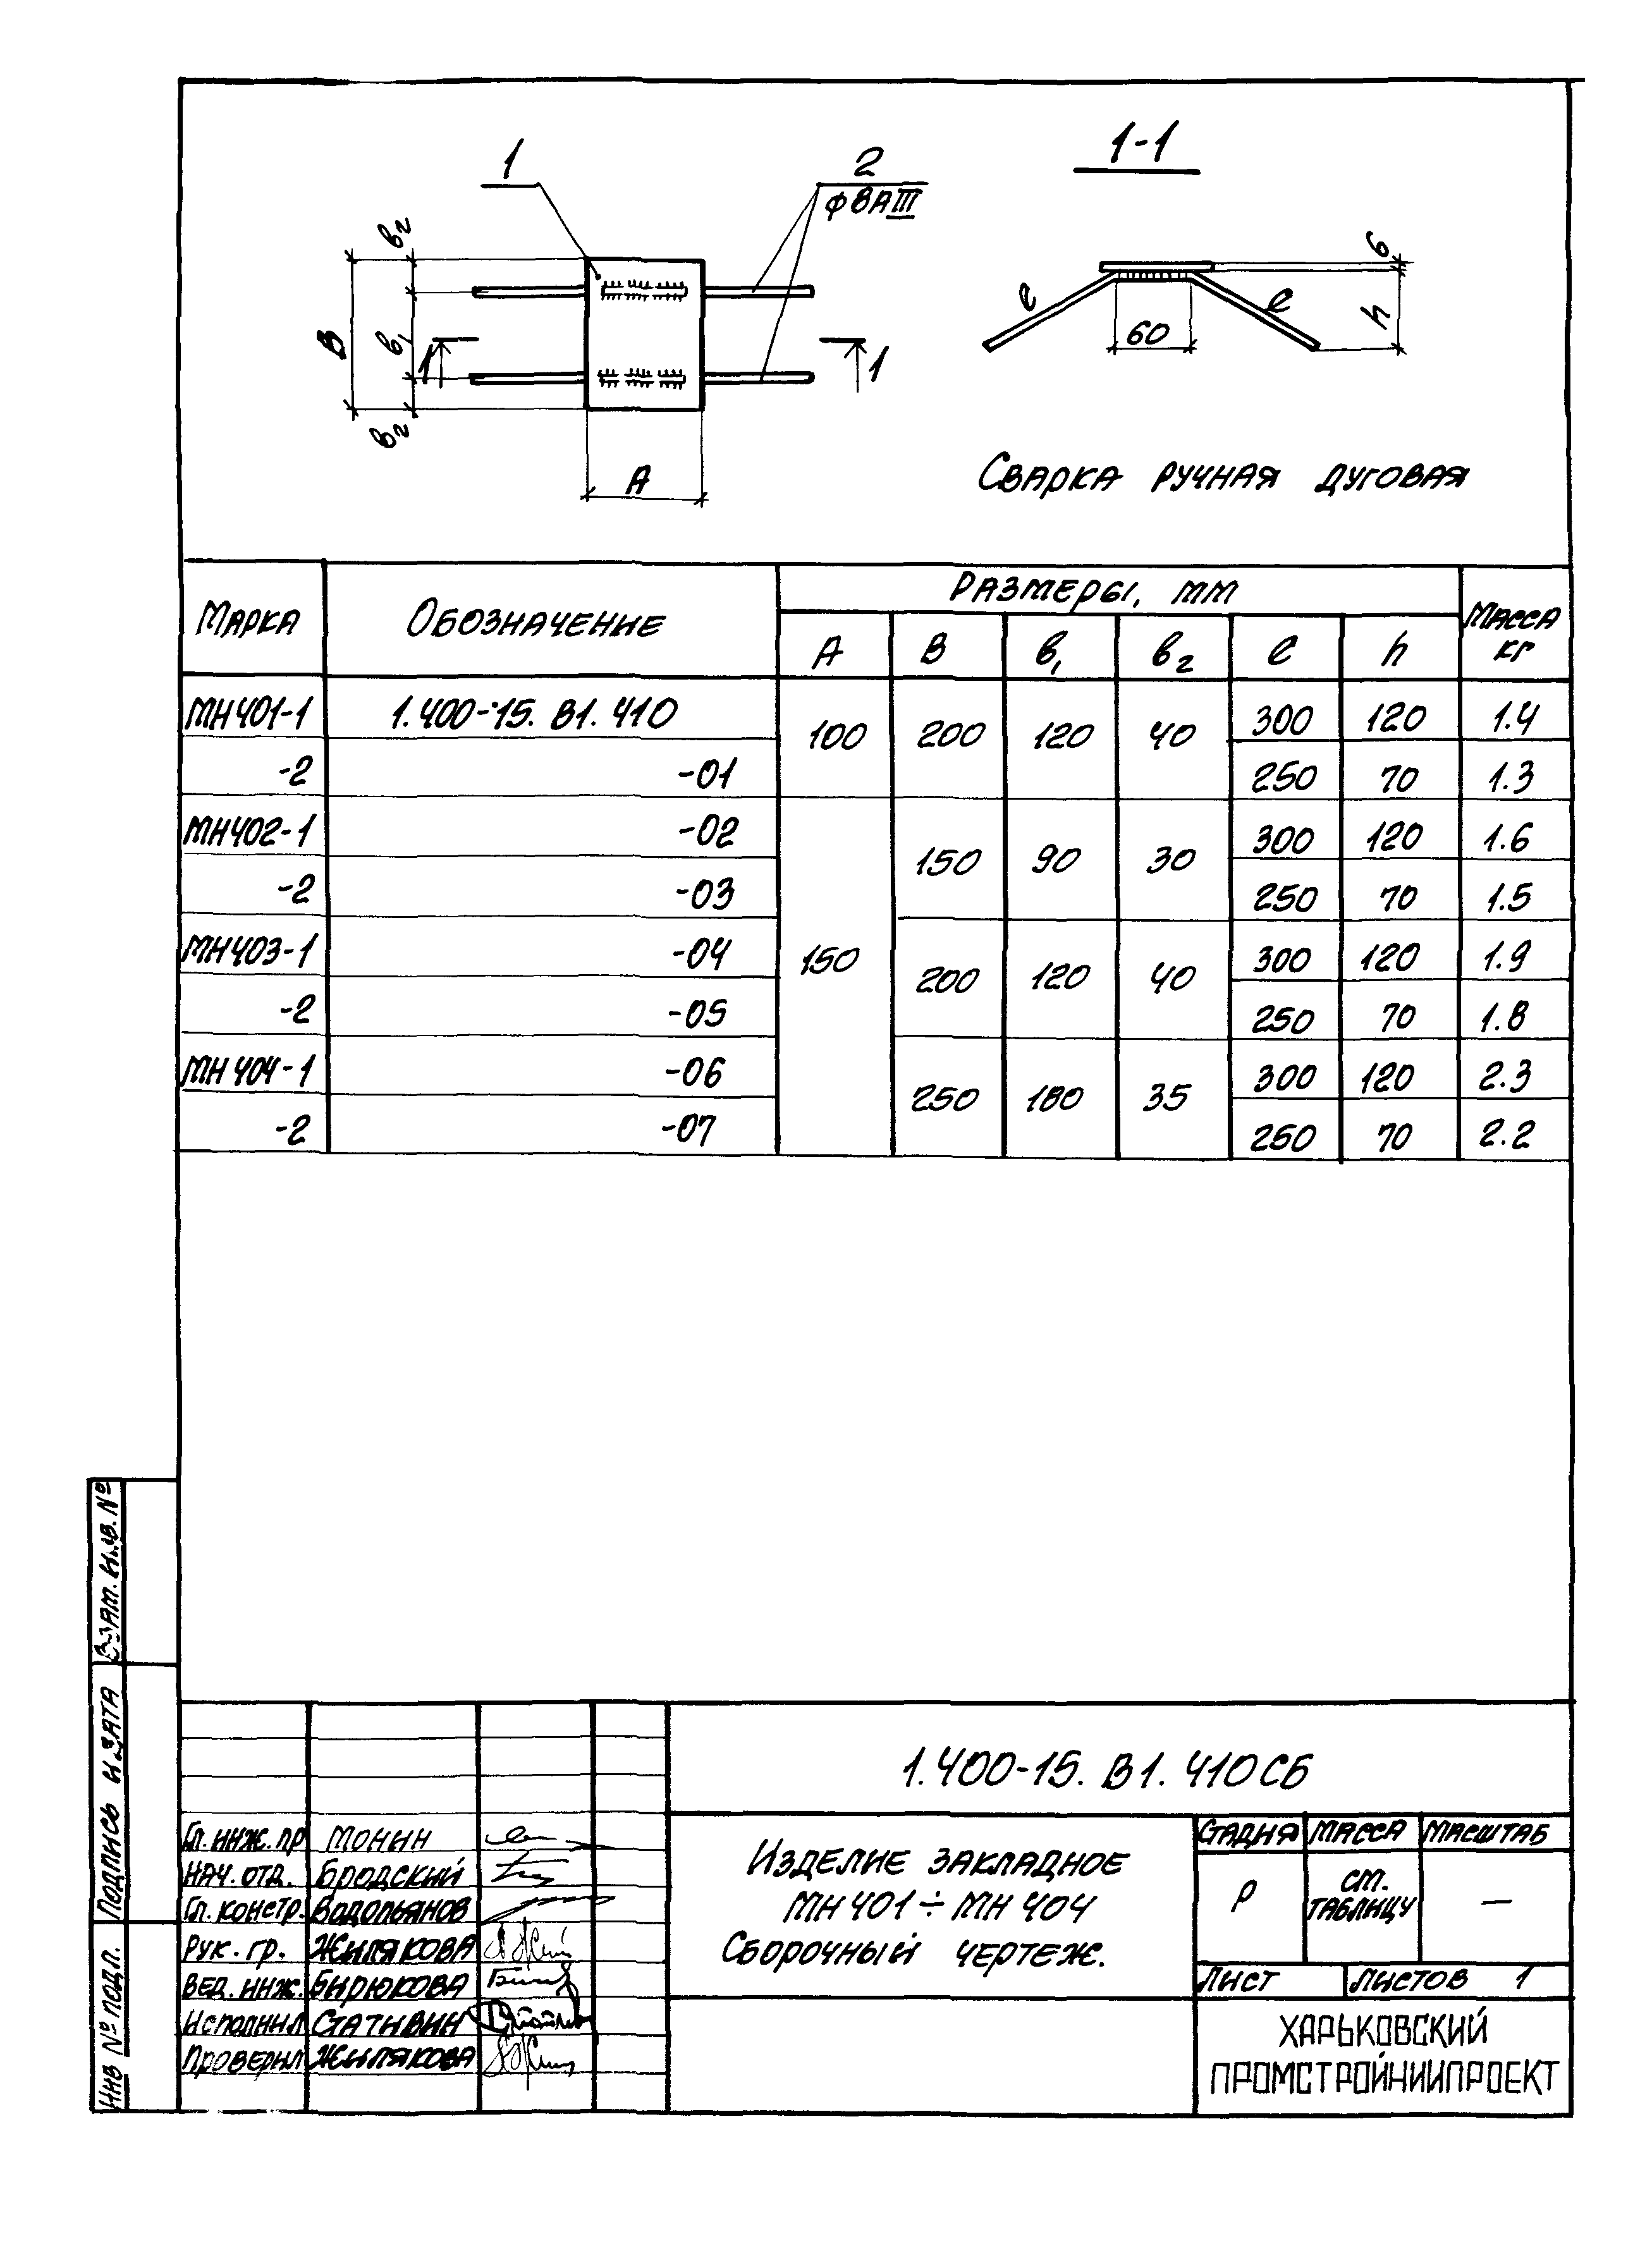 1
2
ф8АIII
1-1
в2
в1
В
в2
1
1
А
6
h
ℓ
ℓ
60
Сварка ручная дуговая
Марка Обозначение Размеры, мм Масса кг
А В в1 в2 ℓ h
МН401-1 1.400-15.В1.410 100 200 120 40 300 120 1.4
-2 -01 250 70 1.3
МН402-1 -02 150 150 90 30 300 120 1.6
-2 -03 250 70 1.5
МН403-1 -04 200 120 40 300 120 1.9
-2 -05 250 70 1.8
МН404-1 -06 250 180 35 300 120 2.3
-2 -07 250 70 2.2
Взам. инв. №
Подпись и дата
Инв № подл.
1.400-15.В1.410СБ
Гл. инж. пр Монин
Нач. отд. Бродский
Гл. констр. Водопьянов
Рук. гр. Жилякова
Вед. инж. Бирюкова
Исполнил Стативин
Проверил Жилякова
Изделие закладное
МН401÷МН404
Сборочный чертеж.
Стадия Масса Масштаб
Р см. таблицу —
Лист Листов 1
ХАРЬКОВСКИЙ
ПРОМСТРОЙНИИПРОЕКТ